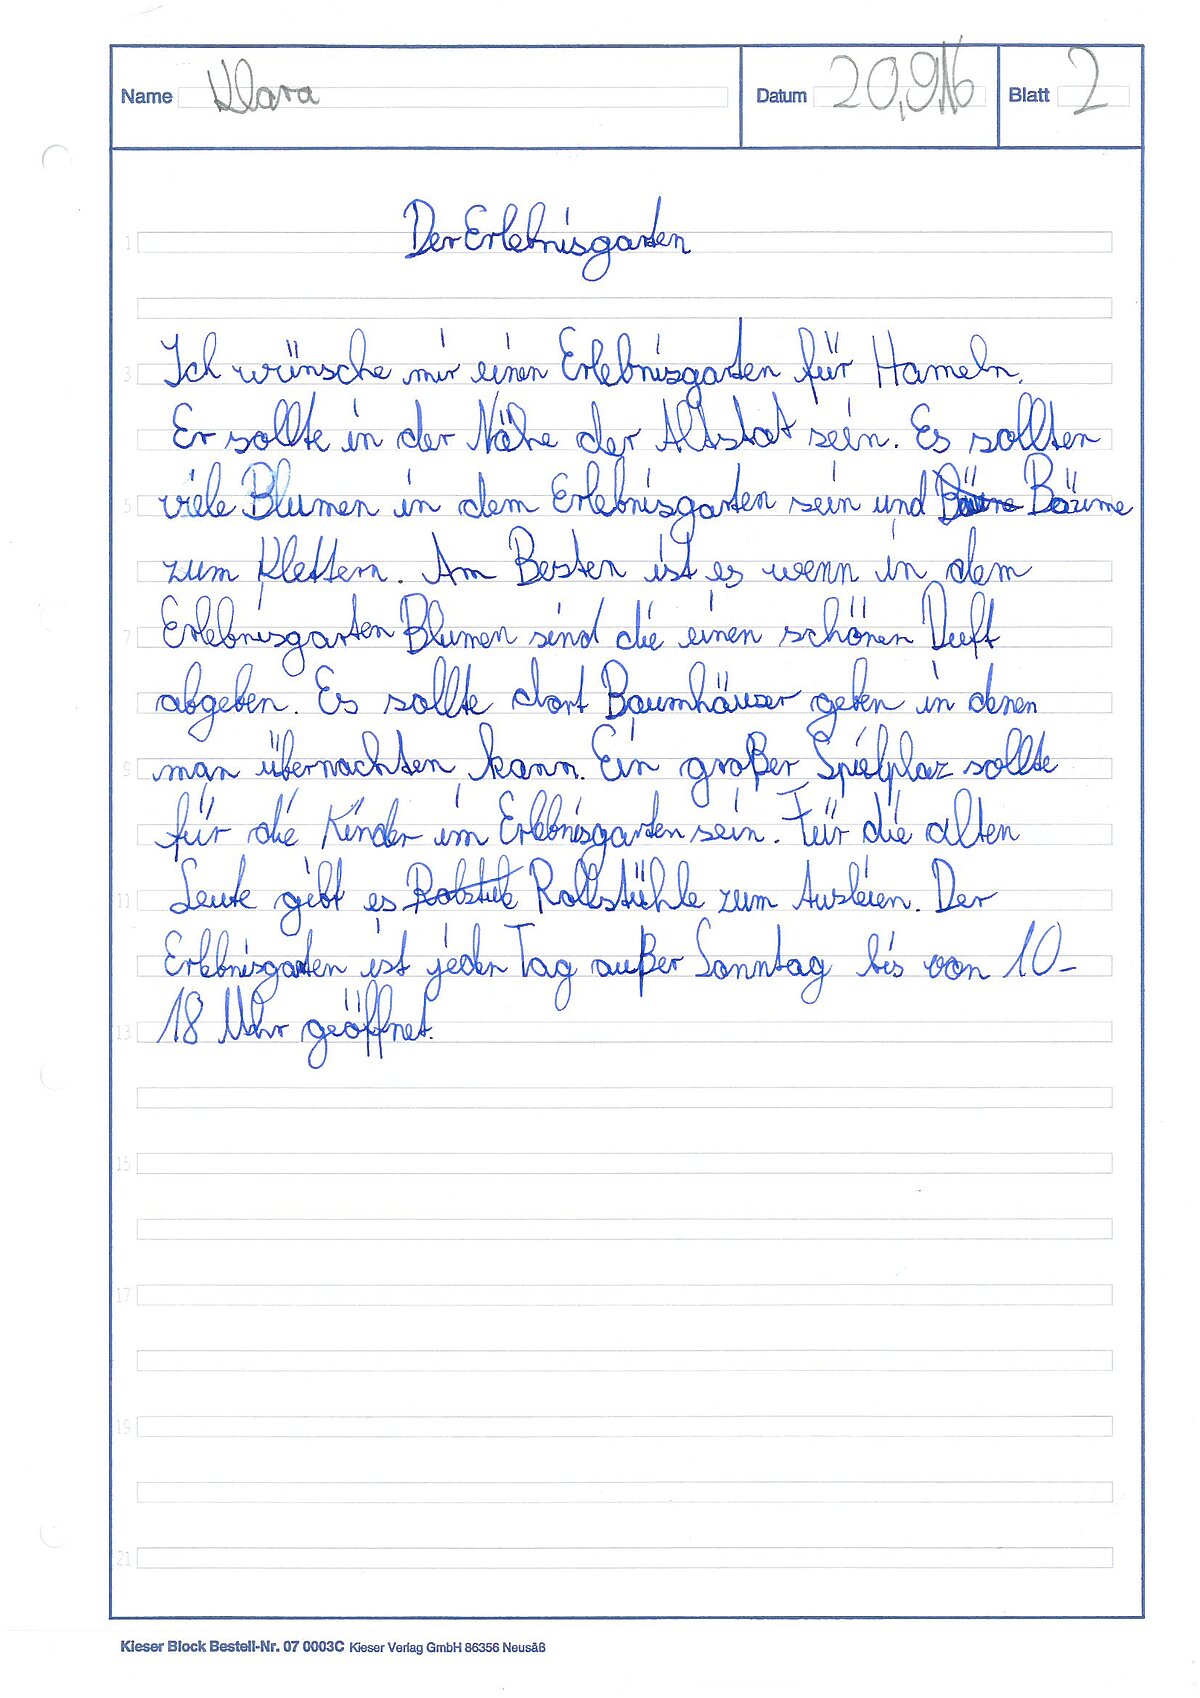 Name Klara Datum 20.9.16 Blatt 2
Der Erlebnisgarten
1
3 Ich wünsche mir einen Erlebnisgarten für Hameln.
Er sollte in der Nähe der Altstat sein. Es sollten
5 viele Blumen in dem Erlebnisgarten sein und Bäume
zum Klettern. Am Besten ist es wenn in dem
7 Erlebnisgarten Blumen sind die einen schönen Duft
abgeben. Es sollte dort Baumhäuser geben in denen
9 man übernachten kann. Ein großer Spielplaz sollte
für die Kinder im Erlebnisgarten sein. Für die alten
11 Leute gibt es Rollstühle zum Ausleien. Der
Erlebnisgarten ist jeden Tag außer Sonntag bis von 10-
13 18 Uhr geöffnet.
15
17
19
21
Kieser Block Bestell-Nr. 07 0003C Kieser Verlag GmbH 86356 Neusäß